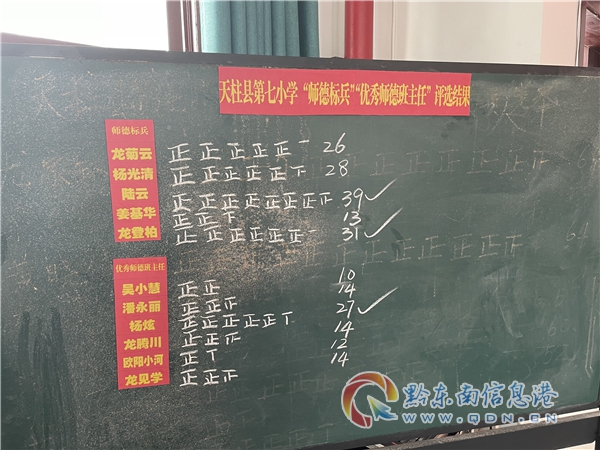 天柱县第七小学“师德标兵”“优秀师德班主任”评选结果
师德标兵
龙菊云 正正正正正一 26
杨光清 正正正正正下 28
陆云 正正正正正正正正 39✓
姜基华 正正下 13
龙登柏 正正正正正正一 31✓
优秀师德班主任
吴小慧 正正 10
潘永丽 正正正 14
杨炫 正正正正正丅 27✓
龙腾川 正正正 14
欧阳小河 正丅 12
龙见学 正正正 14
黔东南信息港
WWW.QDN.CN